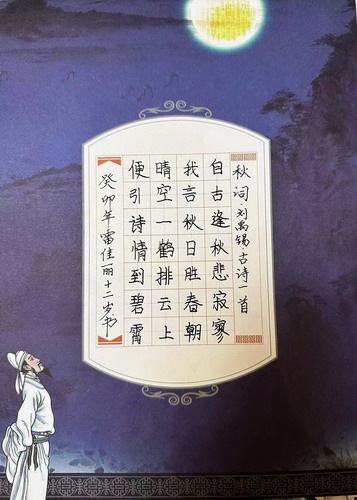 秋词·刘禹锡古诗一首
自古逢秋悲寂寥
我言秋日胜春朝
晴空一鹤排云上
便引诗情到碧霄
癸卯年雷佳丽十二岁书